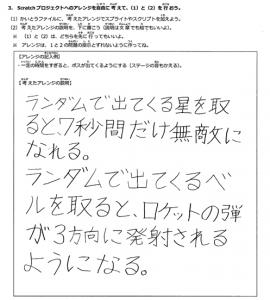 3. Scratchプロジェクトへのアレンジを自由に考えて、(1)と(2)を行おう。
(1) かいとうファイルに、考えたアレンジでスプライトやスクリプトを加えよう。
(2) 考えたアレンジの説明を、下に書こう（説明は文章でも絵でもいいよ）。
※ (1)と(2)は、どちらを先に行ってもいいよ。
※ アレンジは、1と2の問題の指示とずれないように行ってね。
【アレンジの記入例】
・一定の時間をすぎると、ボスが出てくるようにする（ステージの音もかえる）。
【考えたアレンジの説明】
ランダムで出てくる星を取
ると、7秒間だけ無敵に
なれる。
ランダムで出てくるベ
ルを取ると、ロケットの弾
が3方向に発射される
ようになる。